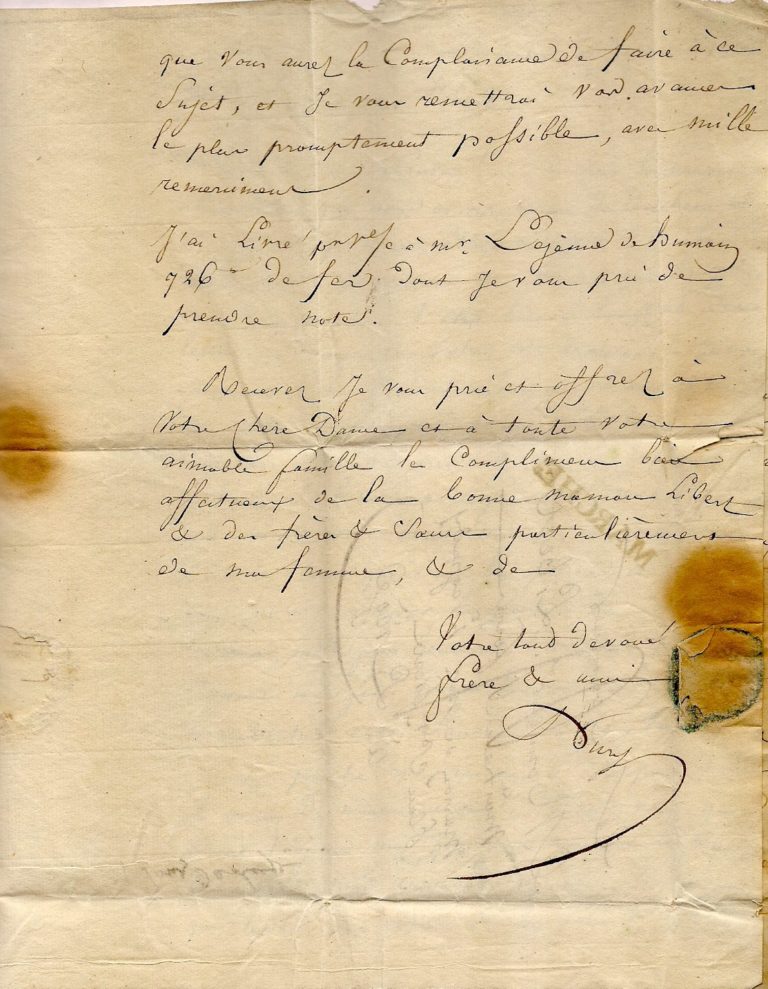 que vous aurez la Complaisance de faire à ce
Sujet, et Je vous remettrai vos avances
le plus promptement possible, avec mille
remerciment.
J'ai Livré à mr. Lejeune de humain
926 de fer dont Je vous prie de
prendre note.
Recevez Je vous prie et offrez à
Votre Chere Dame et à toute Votre
aimable famille les Complimens bien
affectueux de la bonne maman Libert
& des frères & Sœurs particulièrement
de ma femme, & de
Votre tout devoué
frère & ami
MARCHE